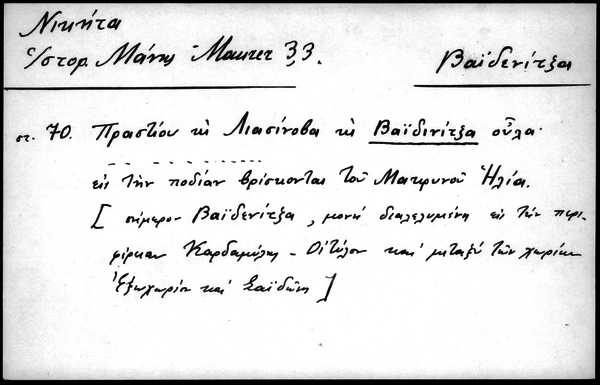 Νικήτα
Ἱστορ. Μάνης - Maurer 3,3.
Βαϊδενίτσα
στ. 70. Πραστίου κὶ Λιασίνοβα κὶ Βαϊδινίτσα οὗλα
εἰς τὴν ποδίαν βρίσκονται τοῦ Μακρυνοῦ Ἠλία.
[ σήμερον Βαϊδενίτσα, μονὴ διαλελυμένη εἰς τὴν περι-
φέρειαν Καρδαμύλης - Οἰτύλου καὶ μεταξὺ τῶν χωρίων
Ἐξωχωρίου καὶ Σαϊδώνης ]